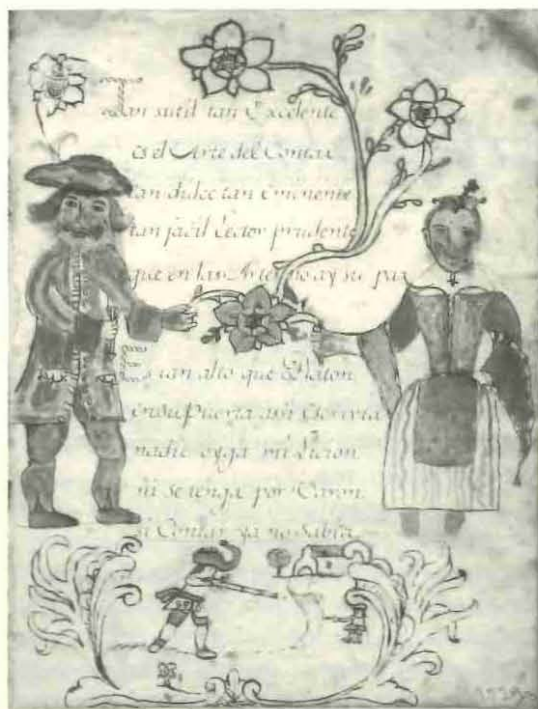 Tan sutil tan Excelente
es el Arte del Contar
tan dulce tan Eminente
tan facil Lector prudente
que en las Artes no ay su par
Es tan alto que Platon
en su Puerta assi Escrivia
nadie oyga mi Licion
ni se tenga por Varon
si Contar ya no Sabia